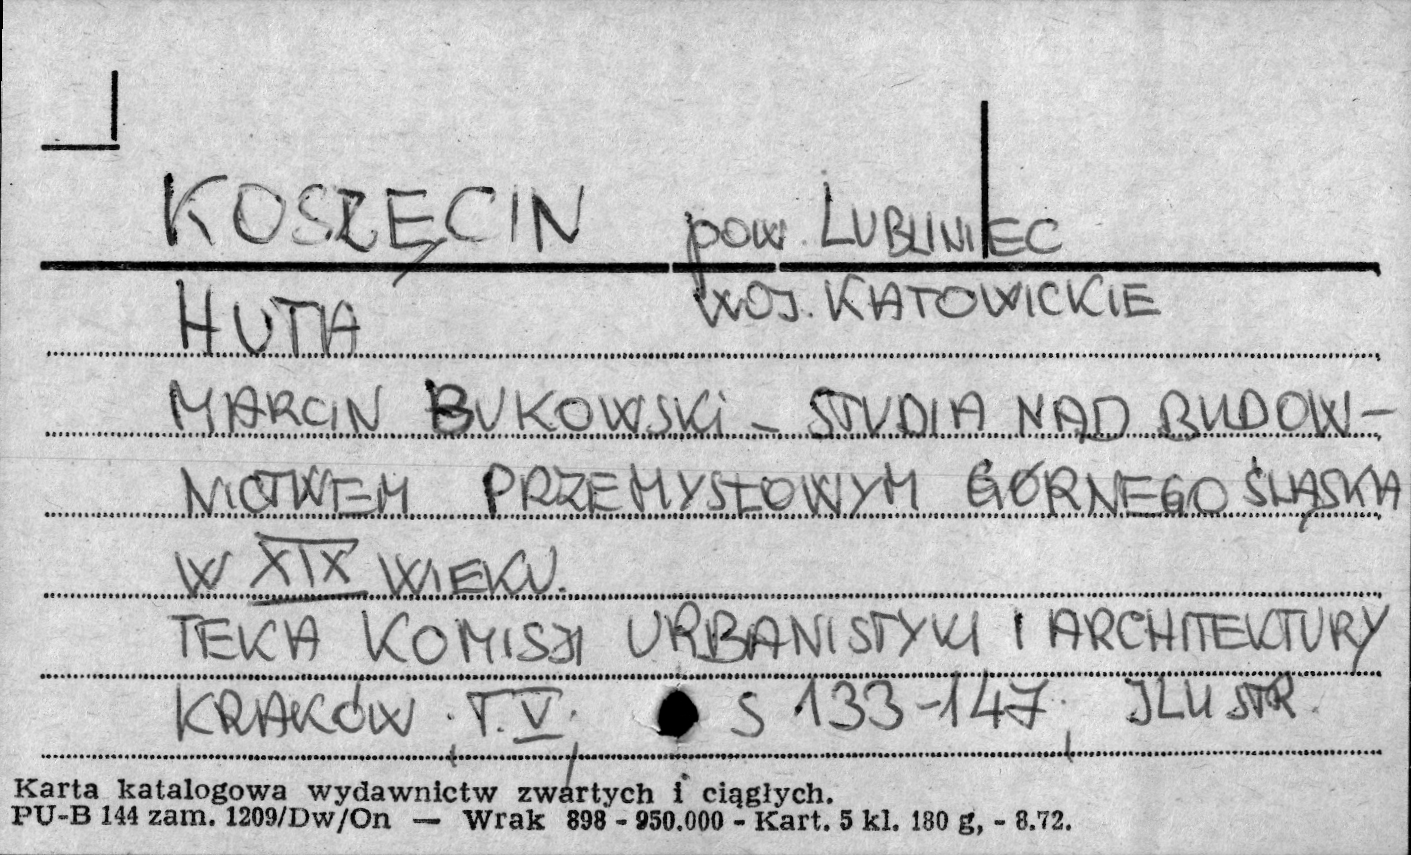 KOSZĘCIN pow. LUBLINIEC
HUTA WOJ. KATOWICKIE
MARCIN BUKOWSKI - STUDIA NAD BUDOW-
NICTWEM PRZEMYSŁOWYM GÓRNEGO ŚLĄSKA
W XIX WIEKU.
TEKA KOMISJI URBANISTYKI I ARCHITEKTURY
KRAKÓW, T. V, S 133-147, ILUSTR.
Karta katalogowa wydawnictw zwartych i ciągłych.
PU-B 144 zam. 1209/Dw/On — Wrak 898 - 950.000 - Kart. 5 kl. 180 g, - 8.72.